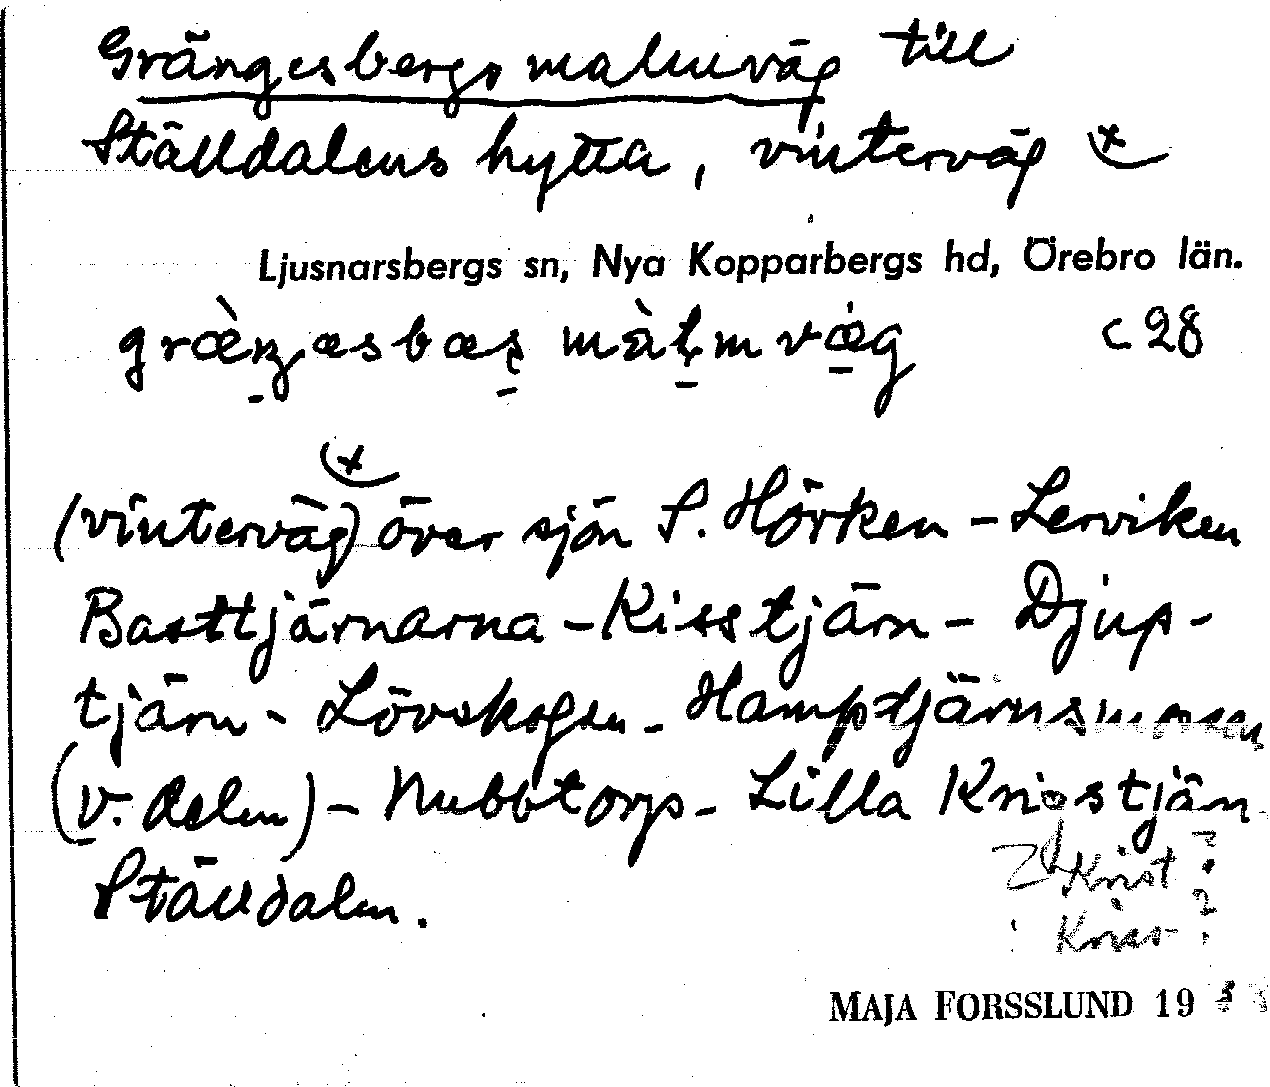 Grängesbergs malmväg till
Ställdalens hytta, vinterväg x
Ljusnarsbergs sn, Nya Kopparbergs hd, Örebro län.
c 28
x
(vinterväg) över sjön S. Hörken - Lerviken
Basttjärnarna - Kisstjärn - Djup-
tjärn - Lövskogen - Hamptjärnsmossen
(v. delen) - Nubbtorp - Lilla
Ställdalen.
Krist ?
MAJA FORSSLUND 19